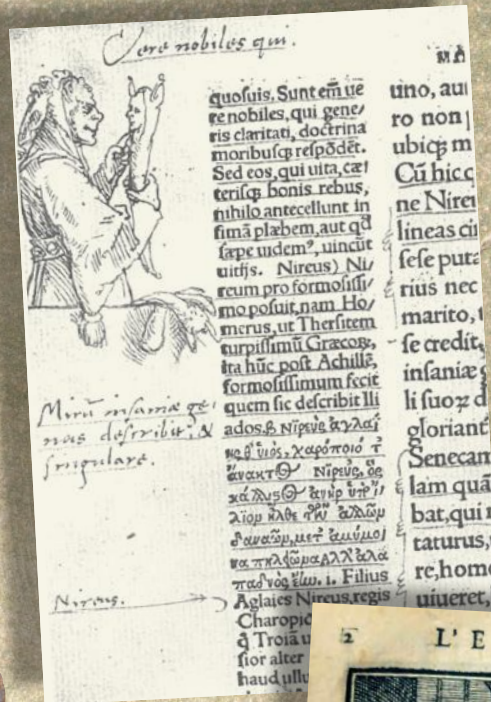 Vere nobiles qui.
quosuis. Sunt em̃ ue
re nobiles, qui gene/
ris claritati, doctrina
moribusq; respõdẽt.
Sed eos, qui uita, cæt
terisq; bonis rebus,
nihilo antecellunt in
fimã plæbem, aut qđ
sæpe uidem⁹, uincũt
uitijs. Nireus) Ni/
reum pro formosissi/
mo posuit, nam Ho/
merus, ut Thersitem
turpissimũ Græcorꝝ,
ita hũc post Achillẽ,
formosissimum fecit
quem sic describit Ili
ados. β. Νιρεὺς ἀγλαΐ
Νιρεὺς, ὃς
i. Filius
Aglaies Nireus, regis
Charopiq
ꝗ̃ Troiã u
sior alter
haud ullu
Mirũ insaniæ ge,
nus describit, &
singulare.
Nireus.
MO
uno, aut
ro non
ubiq; m
Cũ hic c
ne Nireu
lineas ci
sese puta
rius nec
marito,
se credit,
insaniæ g
li suoꝝ d
gloriant
Senecam
lam quã
bat, qui
taturus,
re, hom
uiueret,
2 L' E